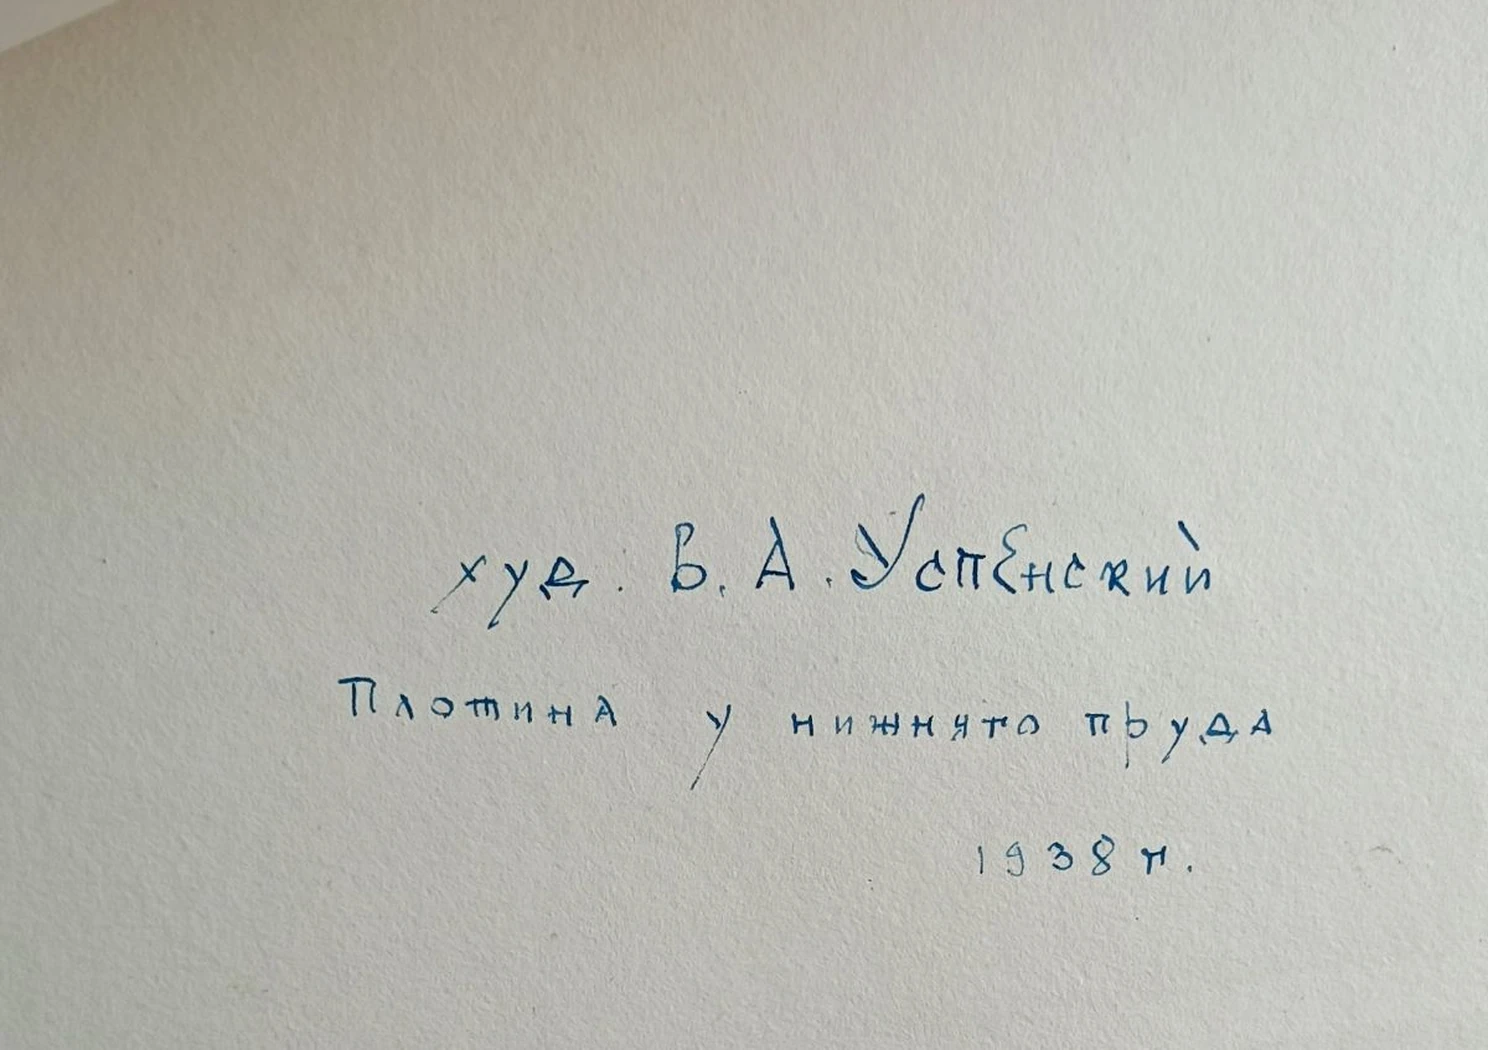 худ. В. А. Успенский
Плотина у нижнято пруда
1938 г.